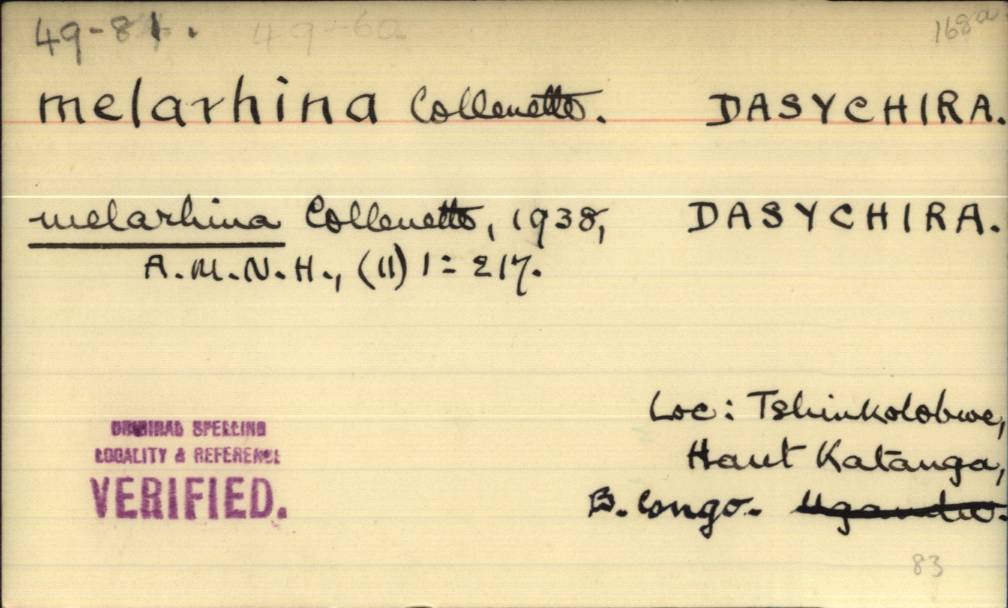 49-81. 49-6a 168a
melarhina Collenette. DASYCHIRA.
melarhina Collenette, 1938, DASYCHIRA.
A.M.N.H., (11) 1: 217.
Loc: Tshinkolobwe,
Haut Katanga,
B. Congo. Uganda.
ORIGINAL SPELLING
LOCALITY & REFERENCE
VERIFIED.
83